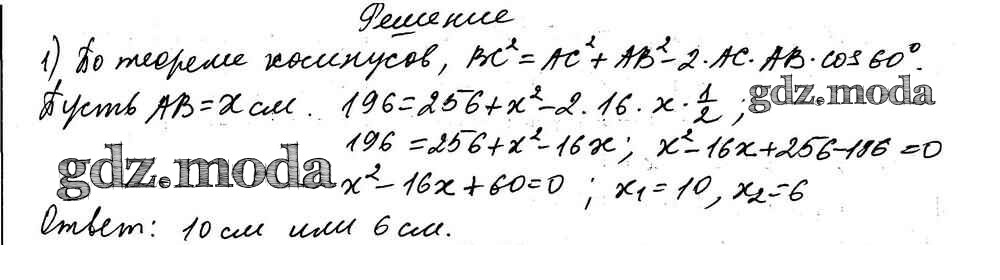 Решение
1) По теореме косинусов, BC² = AC² + AB² - 2·AC·AB·cos 60°.
Пусть AB = x см. 196 = 256 + x² - 2·16·x·1/2; gdz.moda
196 = 256 + x² - 16x; x² - 16x + 256 - 196 = 0
gdz.moda
x² - 16x + 60 = 0; x₁ = 10, x₂ = 6
Ответ: 10 см или 6 см.